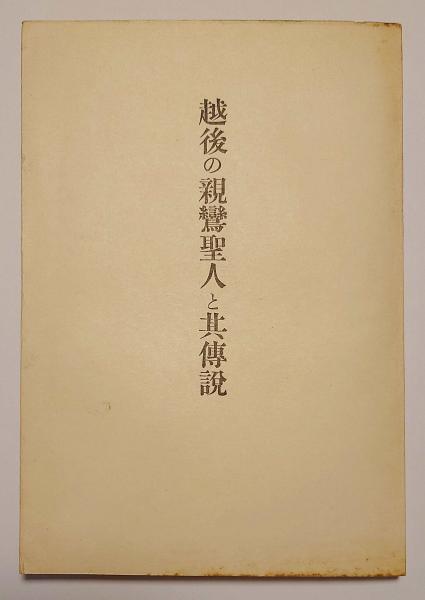 越後の親鸞聖人と其傳說